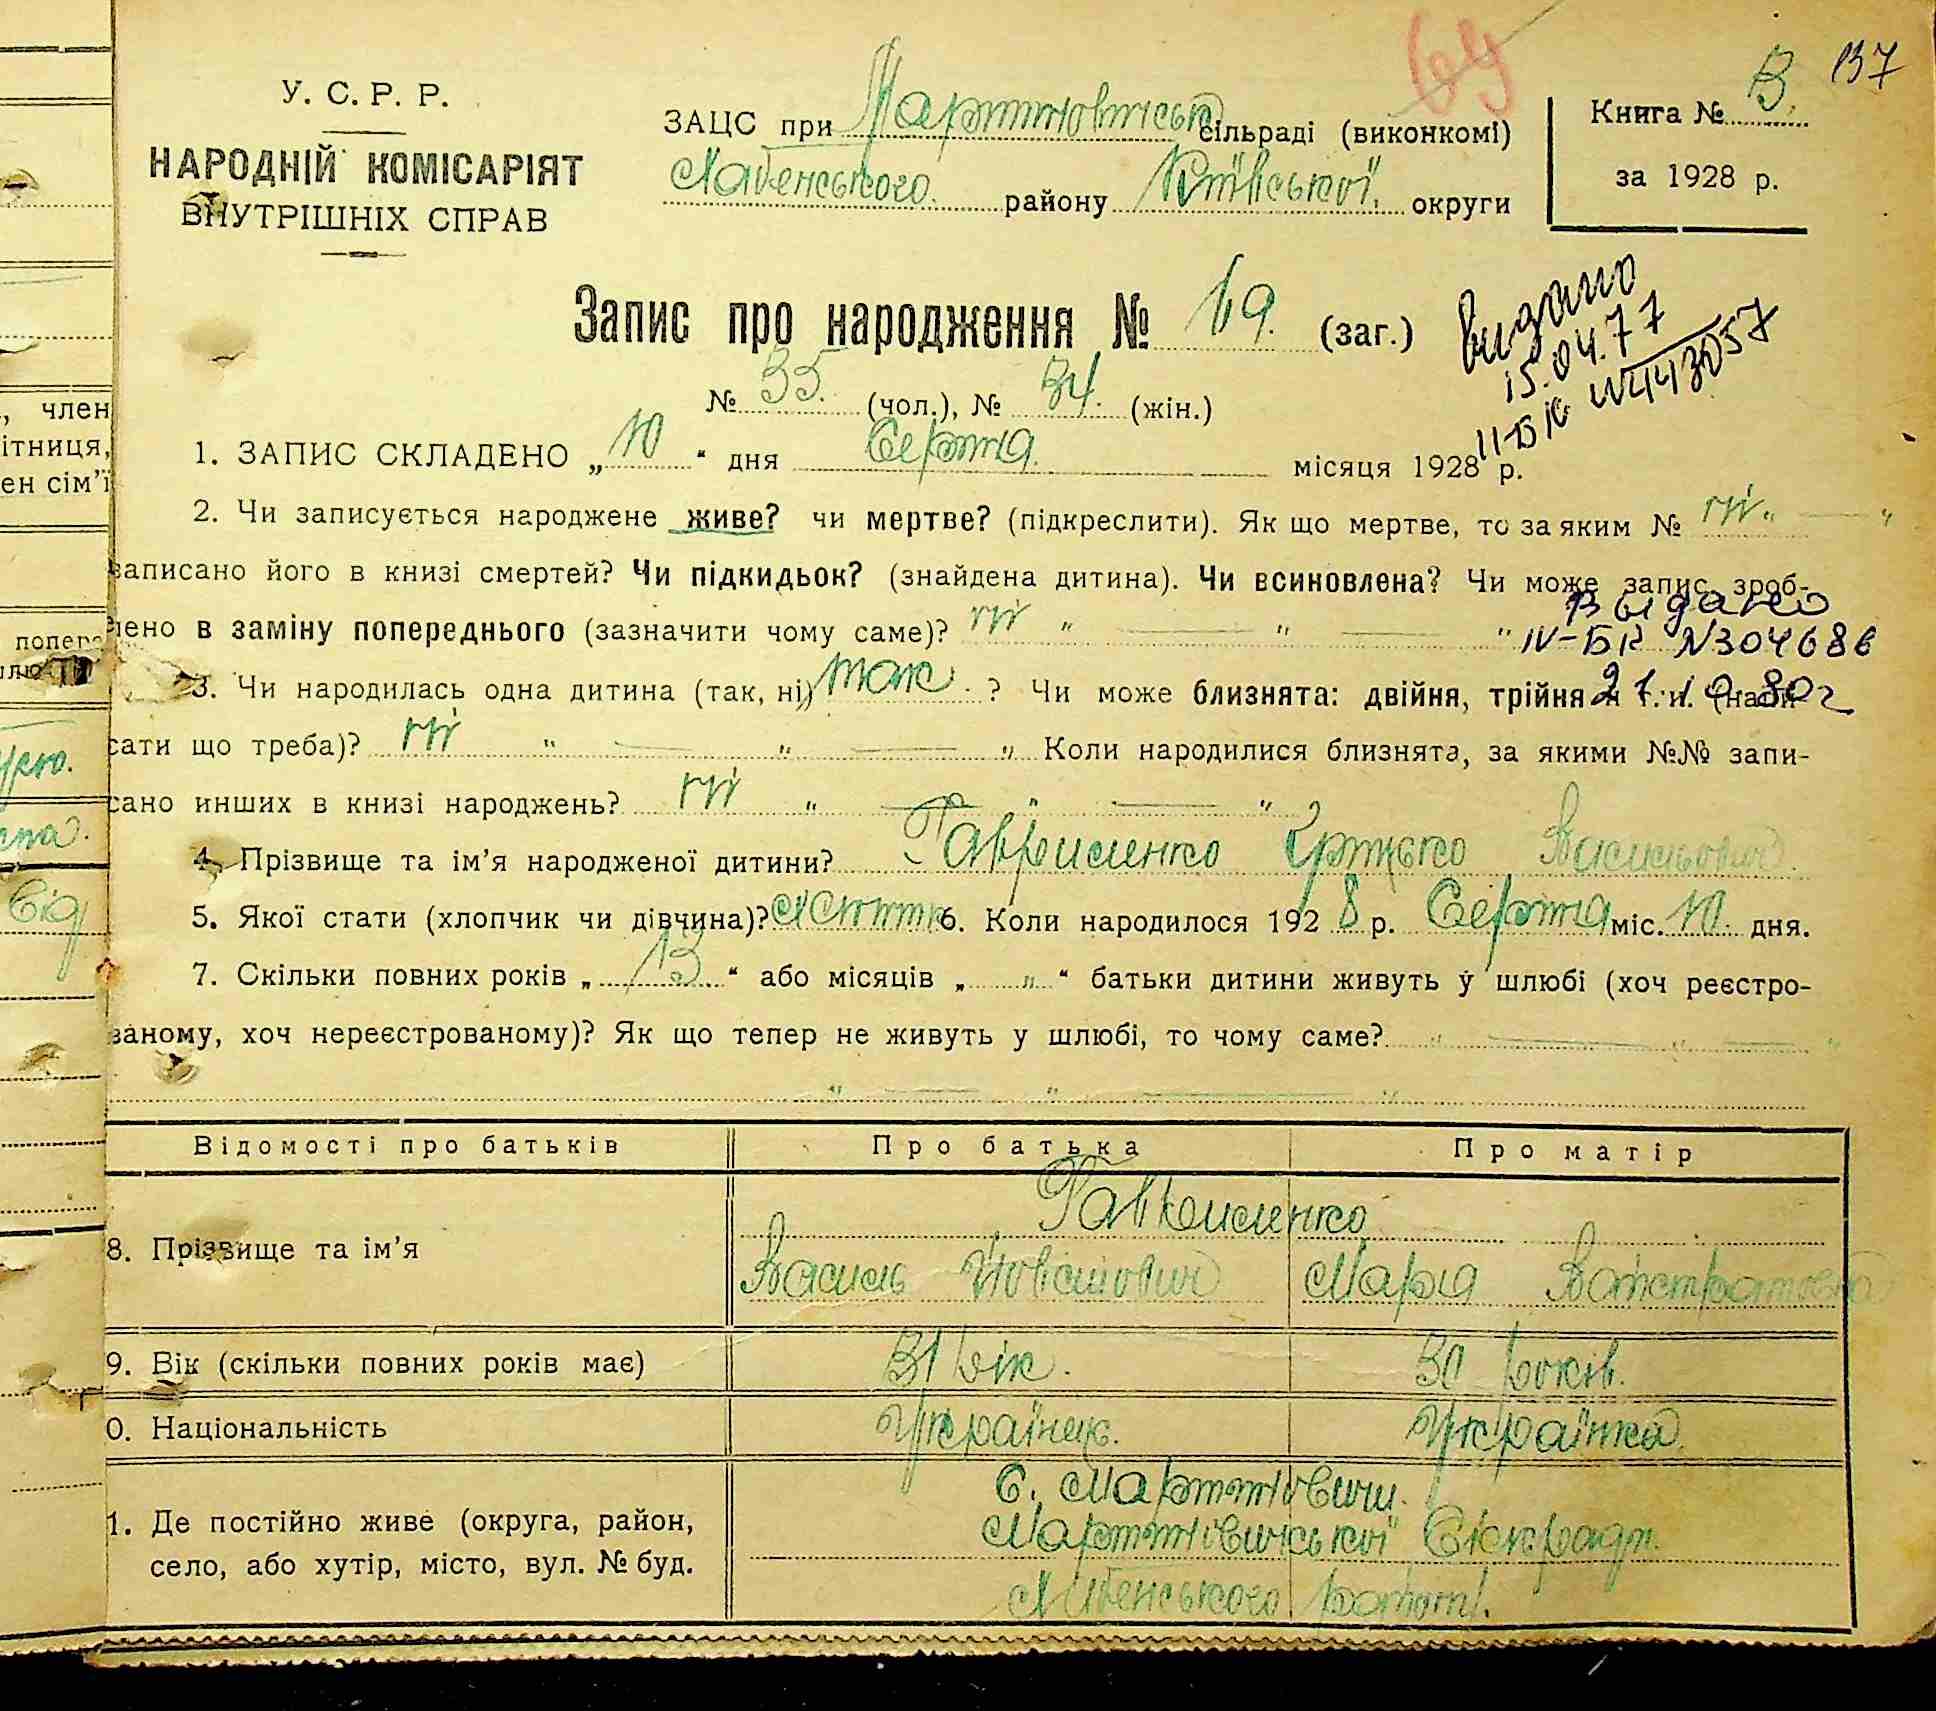 137
69
У. С. Р. Р.
НАРОДНІЙ КОМІСАРІЯТ
ВНУТРІШНІХ СПРАВ
ЗАЦС при Мартиновиській сільраді (виконкомі)
району Київської округи
Книга № В.
за 1928 р.
Запис про народження № 69. (заг.)
№ 35. (чол.), № 34. (жін.)
видано
15.04.77
II-БК №443057
1. ЗАПИС СКЛАДЕНО „10“ дня Серпня місяця 1928 р.
2. Чи записується народжене живе? чи мертве? (підкреслити). Як що мертве, то за яким № ні „ — „
записано його в книзі смертей? Чи підкидьок? (знайдена дитина). Чи всиновлена? Чи може запис зроб-
лено в заміну попереднього (зазначити чому саме)? ні „ — „ — „
Выдано
IV-БК №304686
21.10.80г
3. Чи народилась одна дитина (так, ні) так. ? Чи може близнята: двійня, трійня и т. и. (напи-
сати що треба)? ні „ — „ — „ Коли народилися близнята, за якими №№ запи-
сано инших в книзі народжень? ні „ — „ — „
4. Прізвище та ім’я народженої дитини? Гавриленко Грицько Васильович.
5. Якої стати (хлопчик чи дівчина)? 6. Коли народилося 1928 р. Серпня міс. 10. дня.
7. Скільки повних років „13“ або місяців „ „ “ батьки дитини живуть у шлюбі (хоч реєстро-
ваному, хоч нереєстрованому)? Як що тепер не живуть у шлюбі, то чому саме? „ — „ — „
„ — „ — „
Відомості про батьків Про батька Про матір
Гавриленко
8. Прізвище та ім’я
Василь Марія
9. Вік (скільки повних років має) 31 рік. 30 років.
0. Національність Українець. Українка.
с. Мартиновичи.
1. Де постійно живе (округа, район, Мартиновиської Сільради.
село, або хутір, місто, вул. № буд.
, член
ітниця,
ен сім’ї
попере